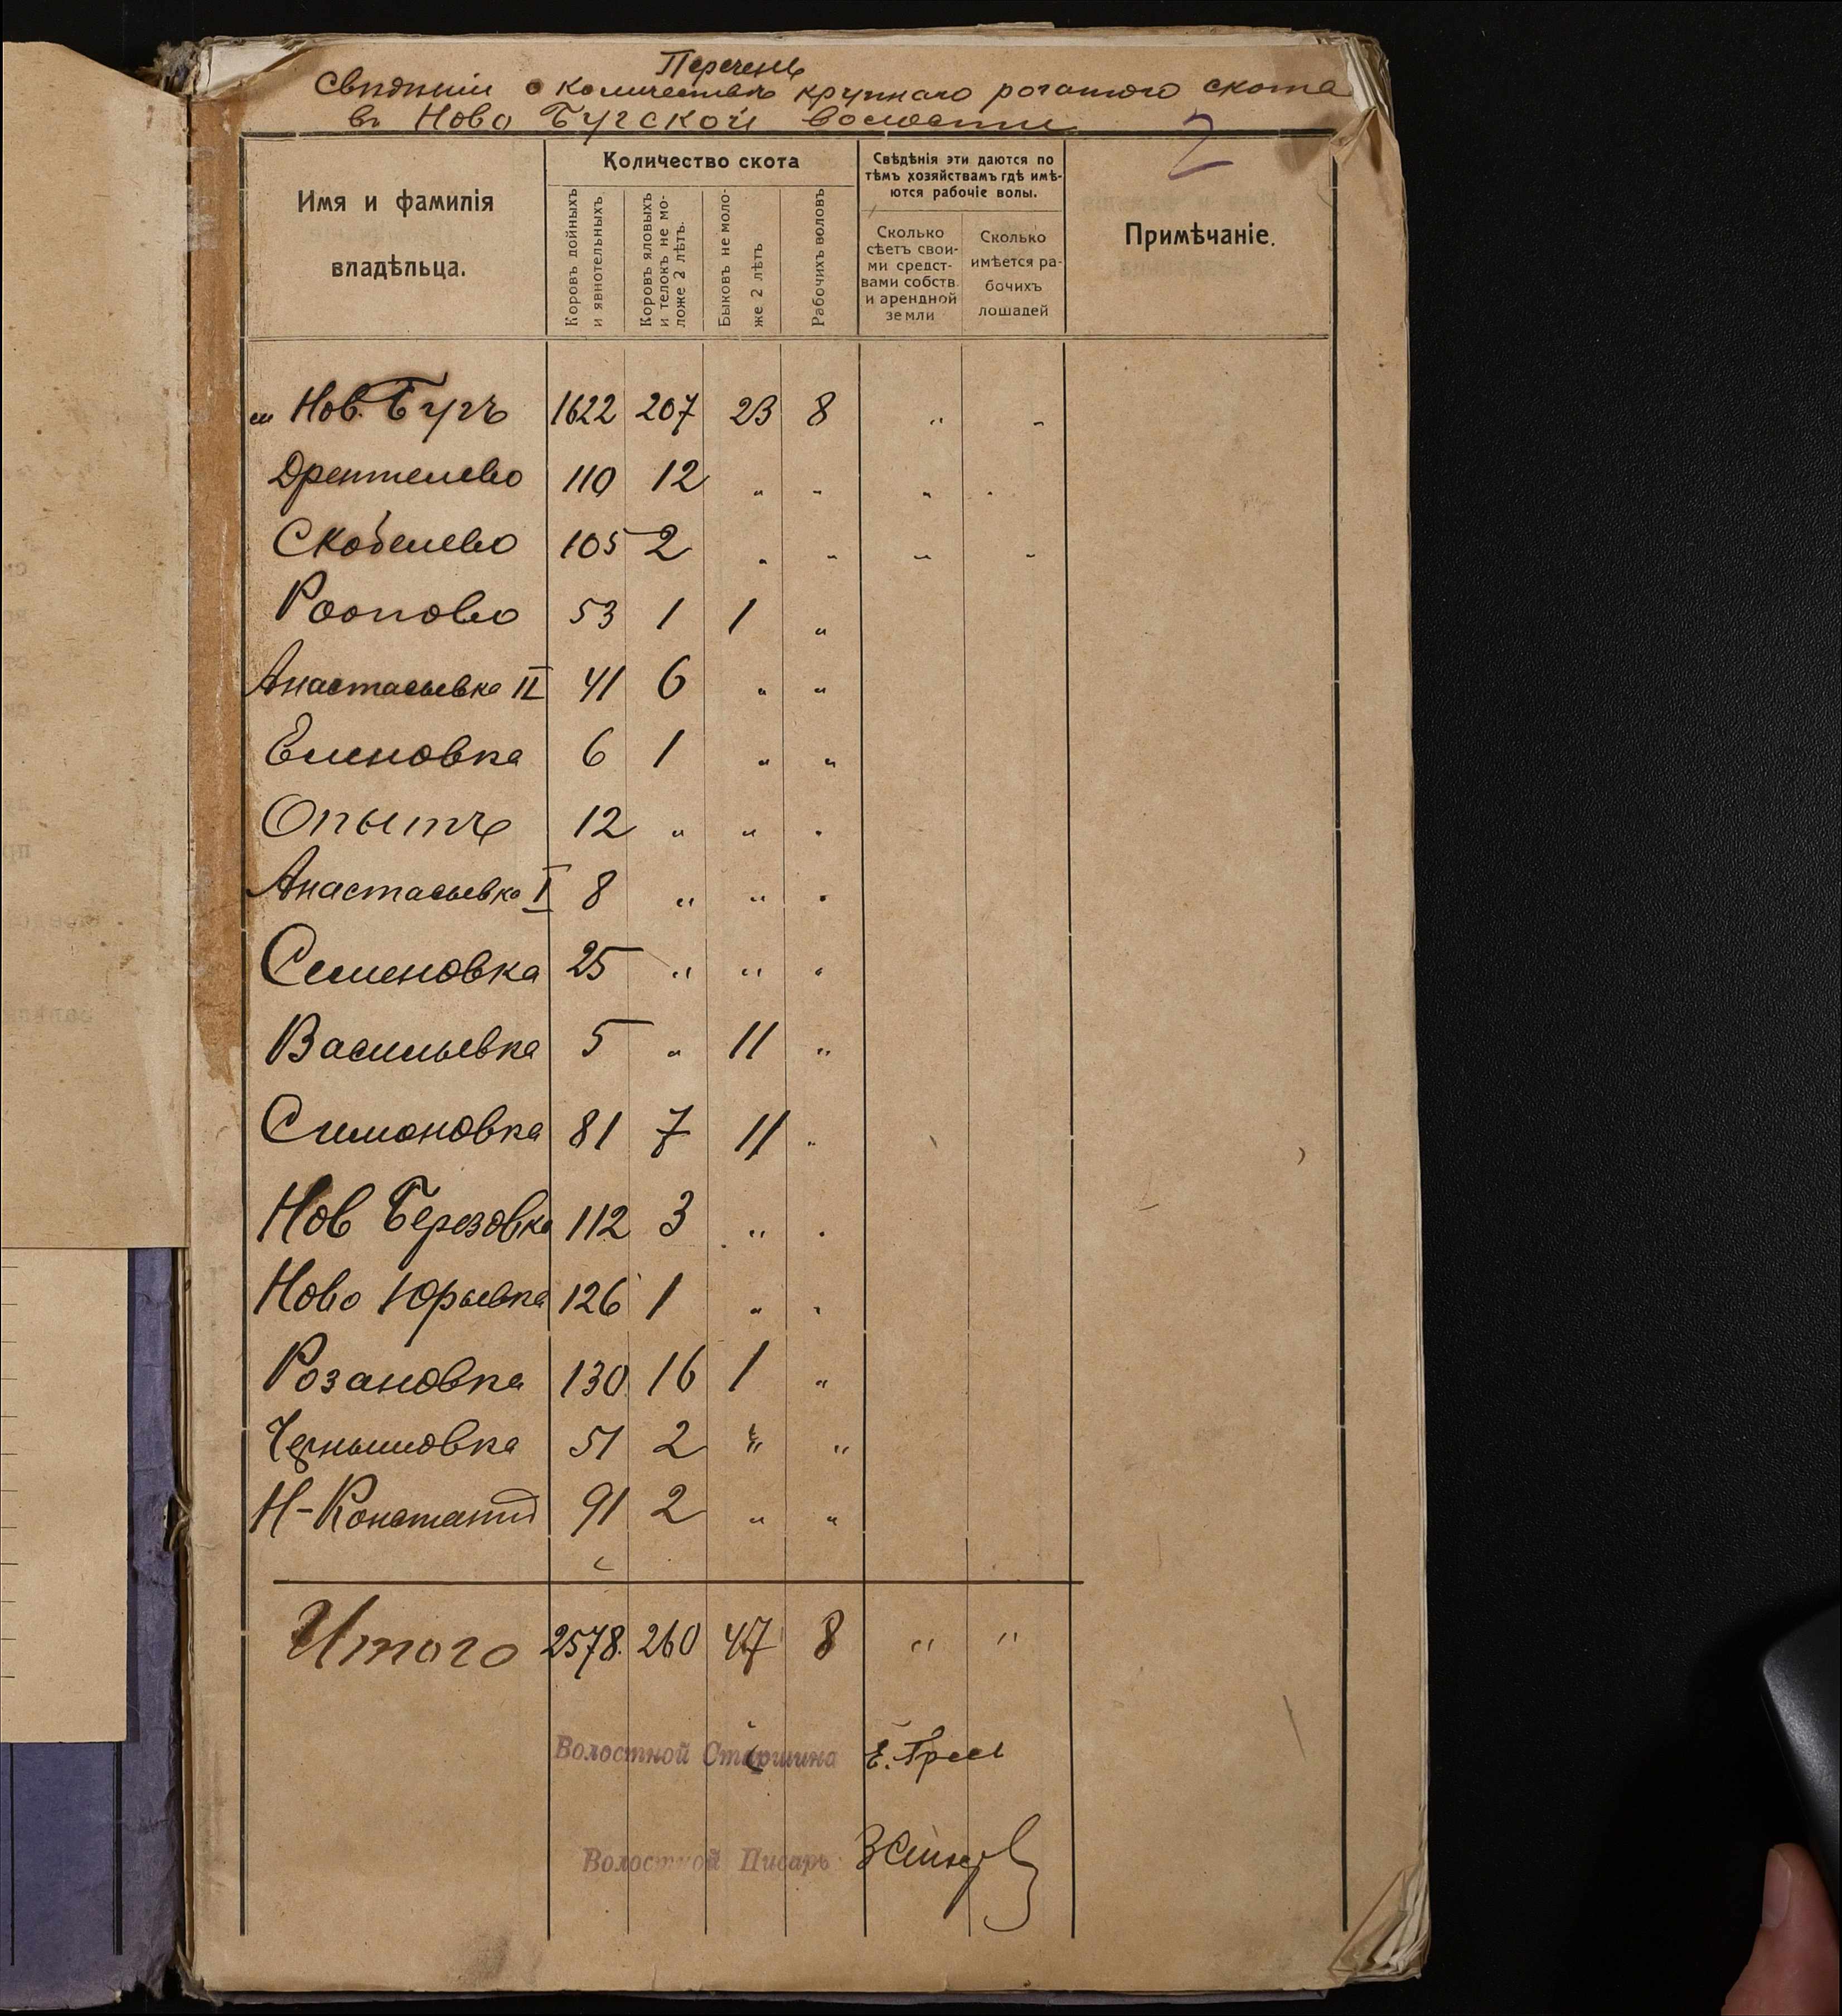 Перечень
Свѣдѣнiи о количествѣ крупнаго рогатого скота
въ Ново Бугской волости
2
Имя и фамилія
владѣльца.
Количество скота
Коровъ дойныхъ
и явнотельныхъ
Коровъ яловыхъ
и телокъ не мо-
ложе 2 лѣтъ.
Быковъ не моло-
же 2 лѣтъ
Рабочихъ воловъ
Свѣдѣнія эти даются по
тѣмъ хозяйствамъ гдѣ имѣ-
ются рабочіе волы.
Сколько
сѣетъ свои-
ми средст-
вами собств.
и арендной
земли
Сколько
имѣется ра-
бочихъ
лошадей
Примѣчаніе.
м Нов. Бугъ 1622 207 23 8 " "
Дрентелево 110 12 " " " "
Скобелево 105 2 " " " "
Роопово 53 1 1 "
Анастасьевка II 41 6 " "
Еленовка 6 1 " "
Опытъ 12 " " "
Анастасьевка I 8 " " "
Семеновка 25 " " "
Васильевка 5 " 11 "
Симоновка 81 7 11 "
Нов Березовка 112 3 " "
Ново Юрьевка 126 1 " "
Розановка 130 16 1 "
Чернышовка 51 2 " "
Н-Константид 91 2 " "
Итого 2578. 260 47 8 " "
Волостной Старшина
Волостной Писарь